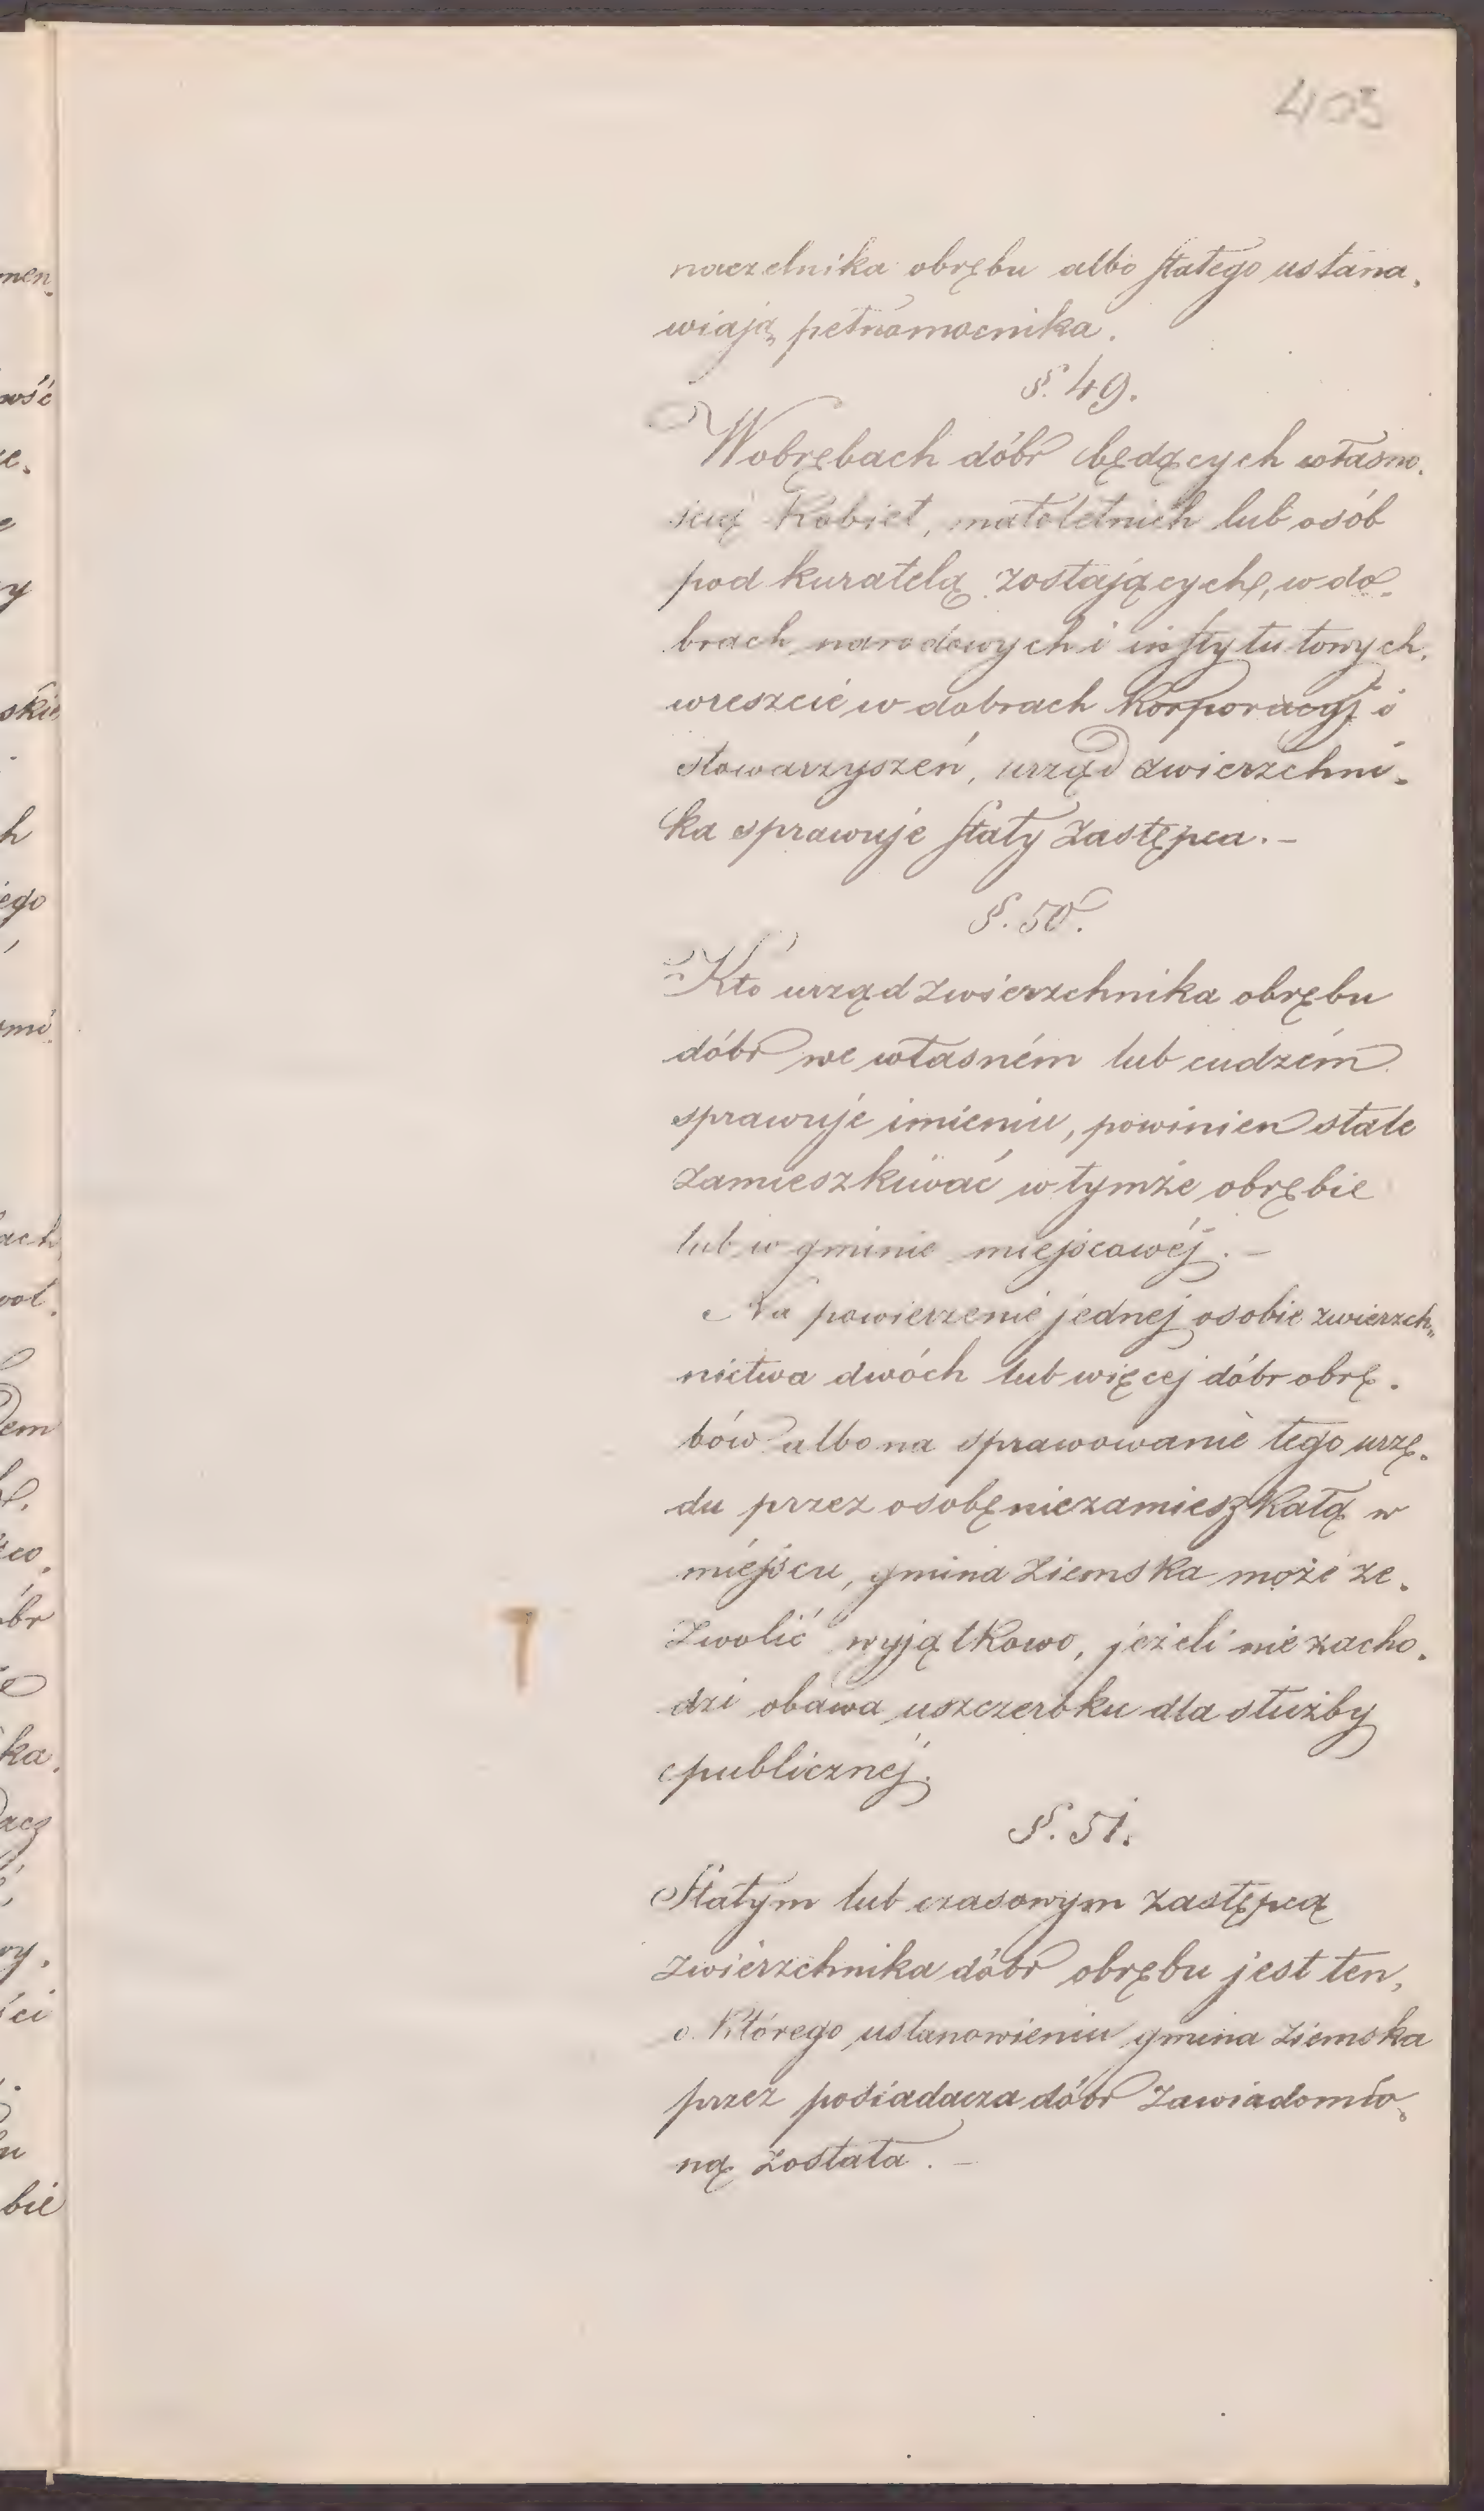 403
naczelnika obrębu albo stałego ustana-
wiają pełnomocnika.
§. 49.
W obrębach dóbr będących własno-
ścią kobiet, małoletnich lub osób
pod kuratelą zostających, w do-
brach narodowych i instytutowych,
wreszcie w dobrach korporacyj i
stowarzyszeń, urząd zwierzchni-
ka sprawuje stały zastępca. -
§. 50.
Kto urząd zwierzchnika obrębu
dóbr we własném lub cudzém
sprawuje imieniu, powinien stale
zamieszkiwać w tymże obrębie
lub w gminie miejscowéj. -
Na powierzenie jednej osobie zwierzch-
nictwa dwóch lub więcej dóbr obrę-
bów albo na sprawowanie tego urzę-
du przez osobę niezamieszkałą w
miejscu, gmina ziemska może ze-
zwolić wyjątkowo, jeżeli nie zacho-
dzi obawa uszczerbku dla służby
publicznéj.
§. 51.
Stałym lub czasowym zastępcą
zwierzchnika dóbr obrębu jest ten,
o którego ustanowieniu gmina ziemska
przez posiadacza dóbr zawiadomio-
ną została. -